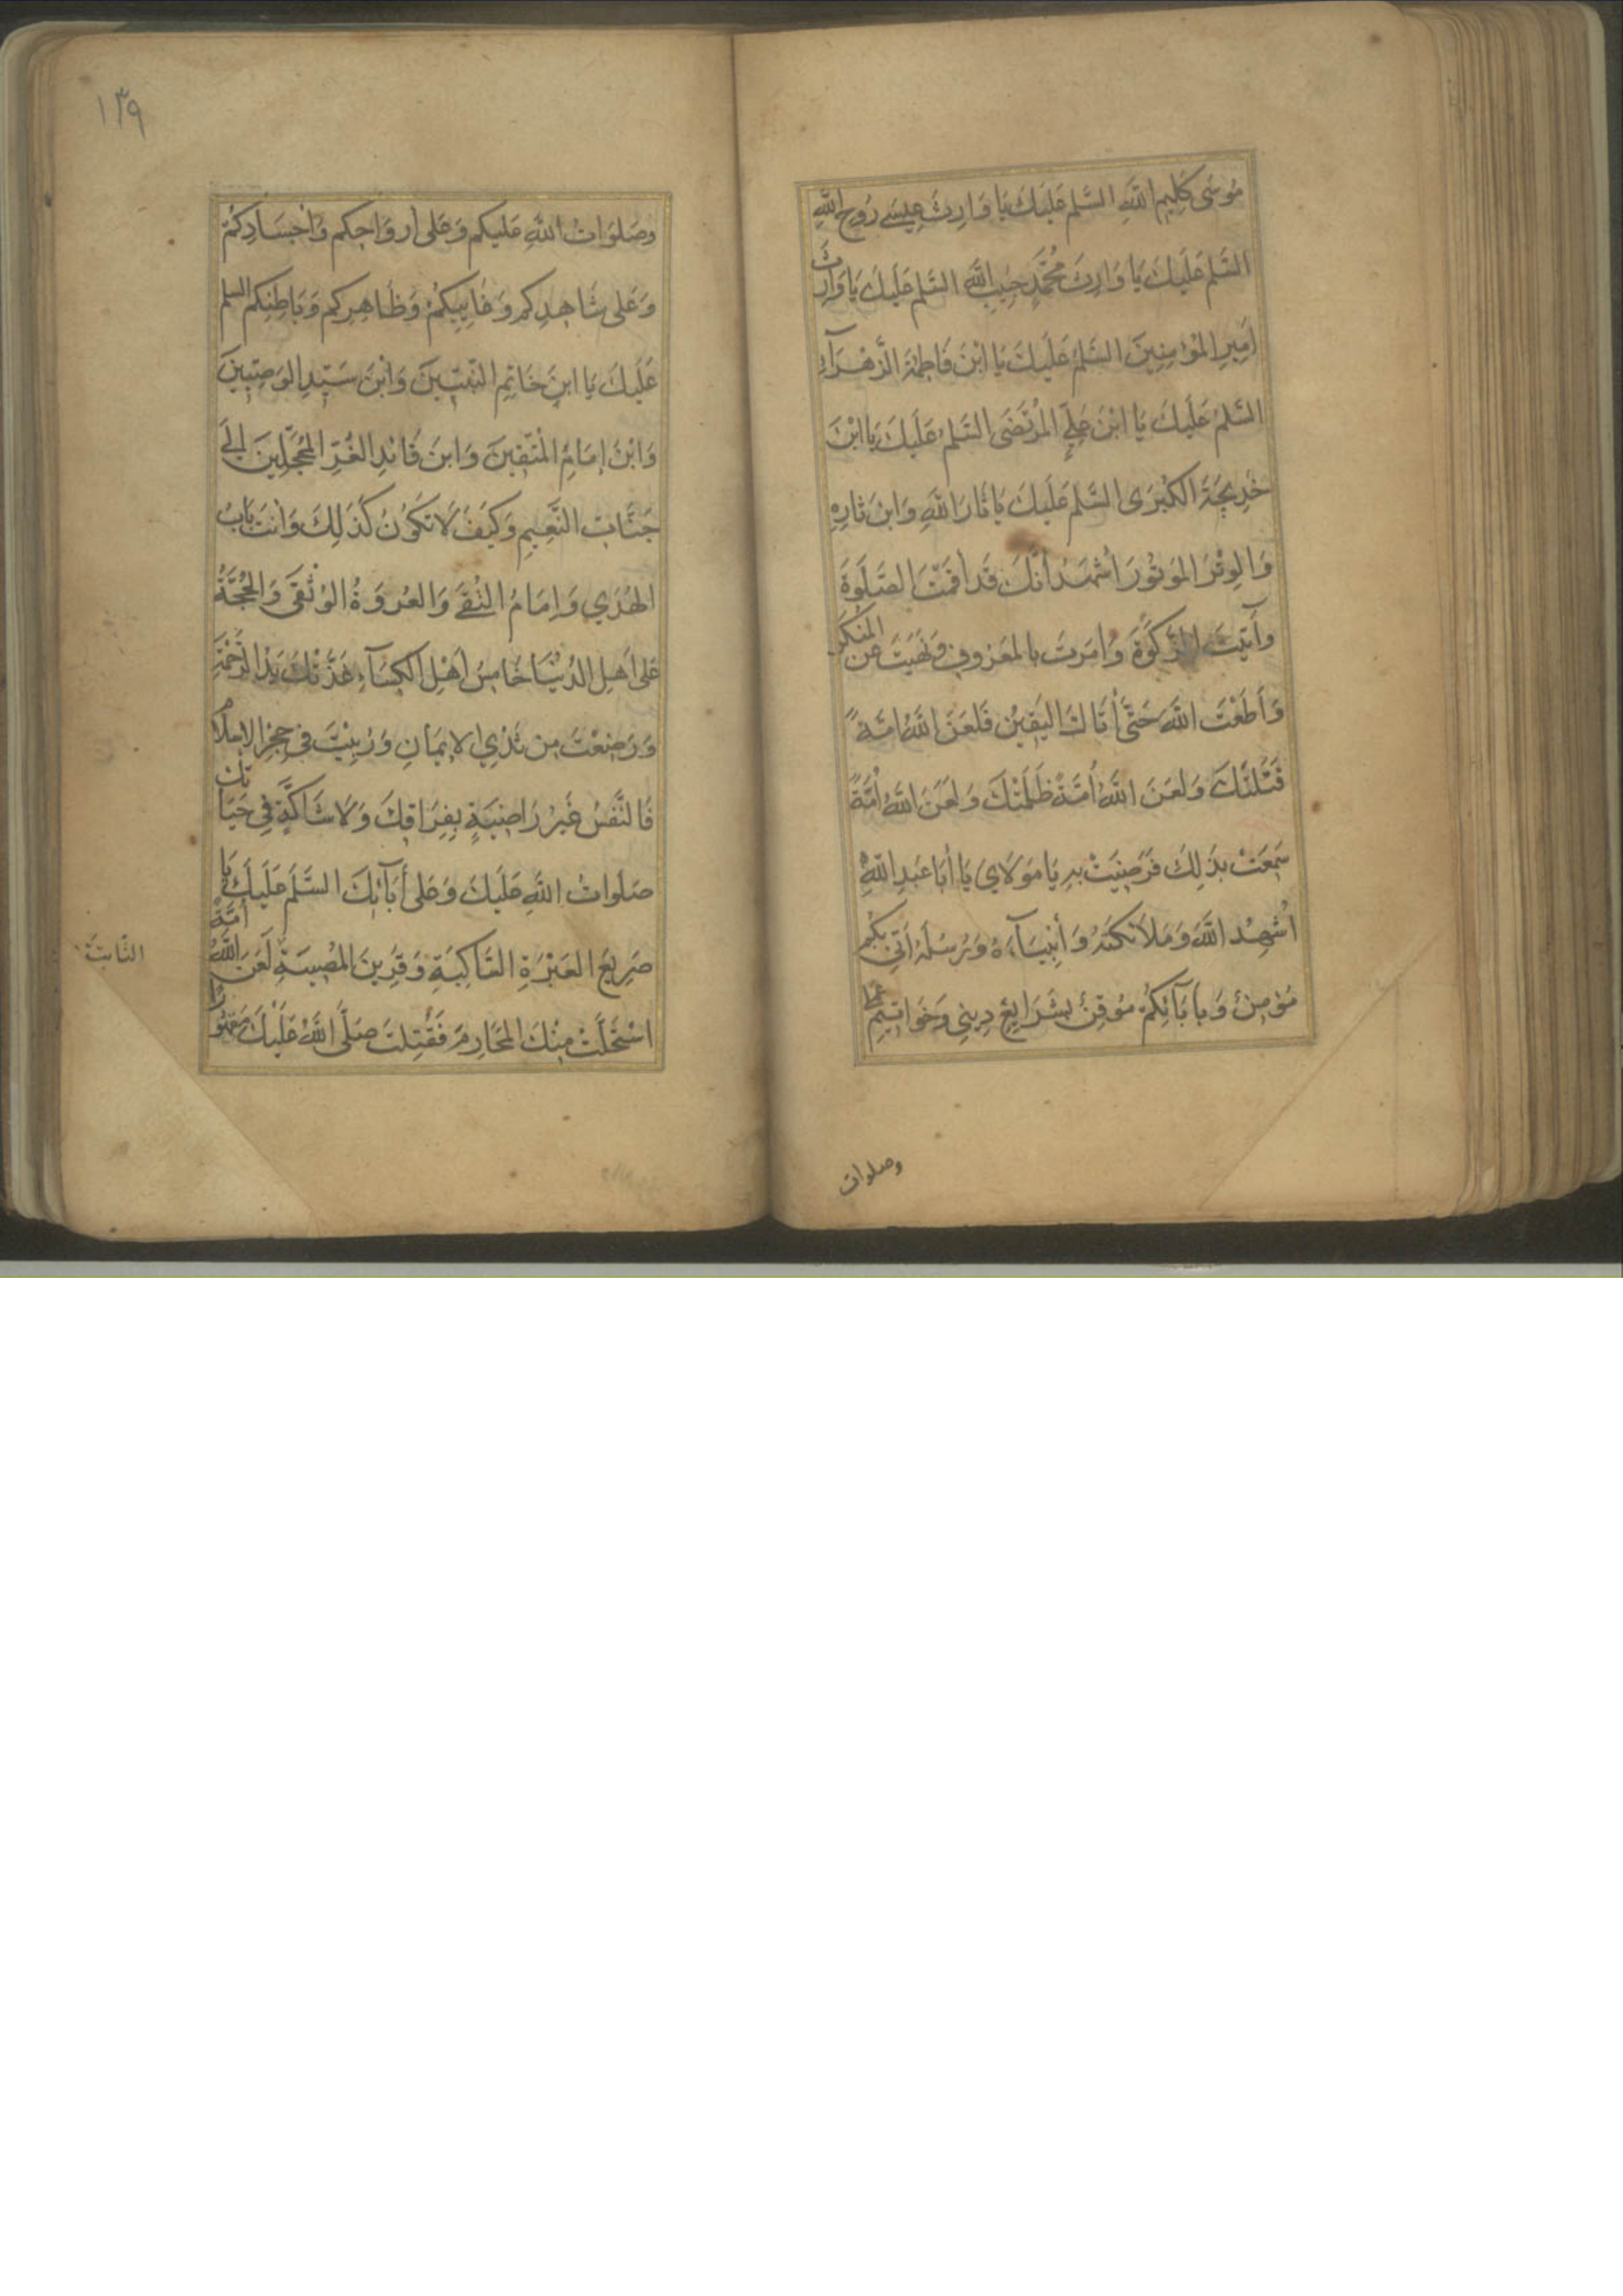 مُوسَى كَلِيمِ اللهِ السَّلمُ عَلَيكَ يَا وَارِثَ عِيسَے رُوحِ اللهِ
السَّلمُ عَلَيكَ يَا وَارِثَ مُحَمَّدٍ حَبِيبِ اللهِ السَّلمُ عَلَيكَ يَا وَارِثَ
اَمِيرِ المُؤمِنِينَ السَّلمُ عَلَيكَ يَا ابْنَ فَاطِمَةَ الزَّهْرَآءِ
السَّلمُ عَلَيكَ يَا ابْنَ عَلِيٍّ المُرْتَضَى السَّلمُ عَلَيكَ يَا ابْنَ
خَدِيجَةَ الكُبْرَى السَّلمُ عَلَيكَ يَا ثَارَ اللهِ وَابنَ ثَارِهِ
وَالوِتْرَ المَوتُورَ أشْهَدُ أنَّكَ قَد أقَمْتَ الصَّلَوةَ
وَآتَيتَ الزَّكَوةَ وَأمَرتَ بِالمَعْرُوفِ وَنَهَيتَ عَنِ المُنكَرِ
وَأَطَعْتَ اللهَ حَتَّى أتَاكَ اليَقِينُ فَلَعَنَ اللهُ امَّةً
قَتَلَتْكَ وَلَعَنَ اللهُ أُمَّةً ظَلَمَتْكَ وَلَعَنَ اللهُ أُمَّةً
سَمِعَتْ بِذَلِكَ فَرَضِيَتْ بِهِ يَا مَولَايَ يَا أبَا عَبدِ اللهِ
اُشْهِدُ اللهَ وَمَلَائكَتَهُ وَأنبِيَآءَهُ وَرُسُلَهُ أنّي بِكُم
مُؤمِنٌ وَبِآبَائِكُمْ مُوقِنٌ بِشَرَايِعِ دِينِي وَخَوَاتِيمِ عَمَلي
وصلوات
١٣٩
وصَلَوَاتُ اللهِ عَلَيكم وَعَلى أروَاحِكم وَأجْسَادِكُمْ
وَعَلى شَاهِدِكم وَغَايِبِكُمْ وَظَاهِرِكم وَبَاطِنِكم السلم
عَلَيكَ يَا ابنَ خَاتِمِ النَّبِيّينَ وَابْنَ سَيّدِ الوَصِيّينَ
وَابْنَ إمَامِ المُتَّقِينَ وَابنَ قَائدِ الغُرِّ المُحَجَّلِينَ إلَے
جَنَّاتِ النَّعِيمِ وَكَيفَ لَا تَكُونُ كَذَلِكَ وَأنتَ بَابُ
الهُدَي وَإمَامُ التُّقَے وَالعُروَةُ الوُثْقَى وَالحُجَّةُ
عَلى اَهلِ الدُّنيَا خَامِسُ أهْلِ الكِسَآءِ غَذَّتْكَ يَدُ الرَّحْمَةِ
وَرَضِعْتَ مِن ثَدْيِ الإيمَانِ وَرُبِّيْتَ فِي حِجْرِ الإسلَامِ
فَالنَّفْسُ غَيْرُ رَاضِيَةٍ بِفِرَاقِكَ وَلَا شَاكَّةٍ فِي حَيَاتِكَ
صَلَوَاتُ اللهِ عَلَيكَ وَعَلى أبَآئِكَ السَّلَمُ عَلَيكَ يَا
صَرِيعَ العَبْرَةِ السَّاكِبَةِ وَقَرِينَ المُصِيبَةِ لَعَنَ اللهُ أمَّةً
اسْتَحَلَّتْ مِنْكَ المَحَارِمَ فَقُتِلتَ صَلَّى اللهُ عَلَيْكَ مَقهُورًا